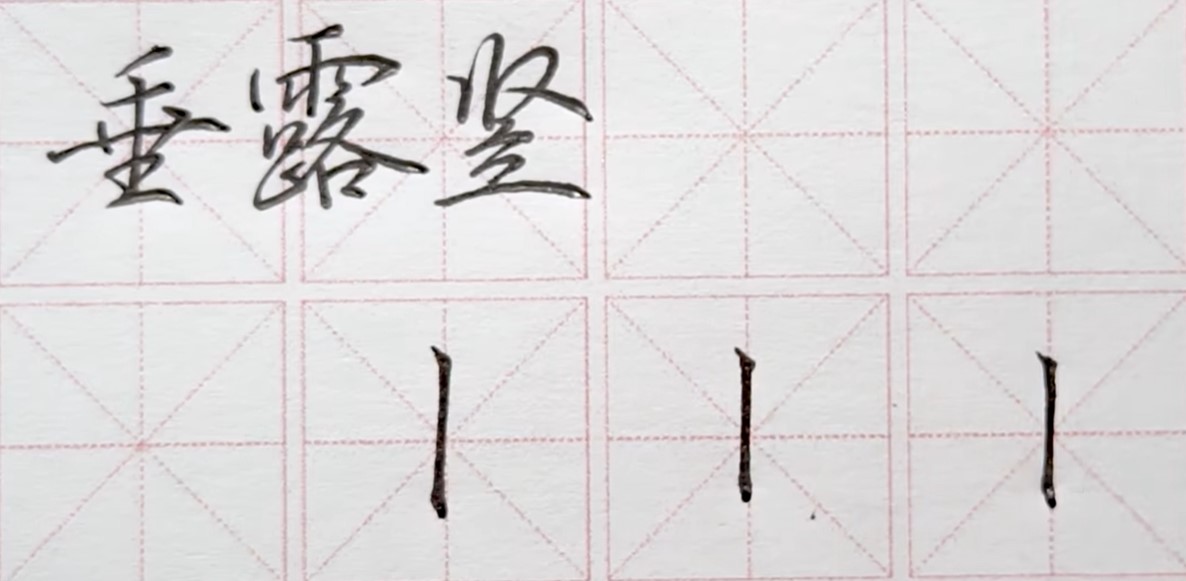 垂露竖
丨丨丨